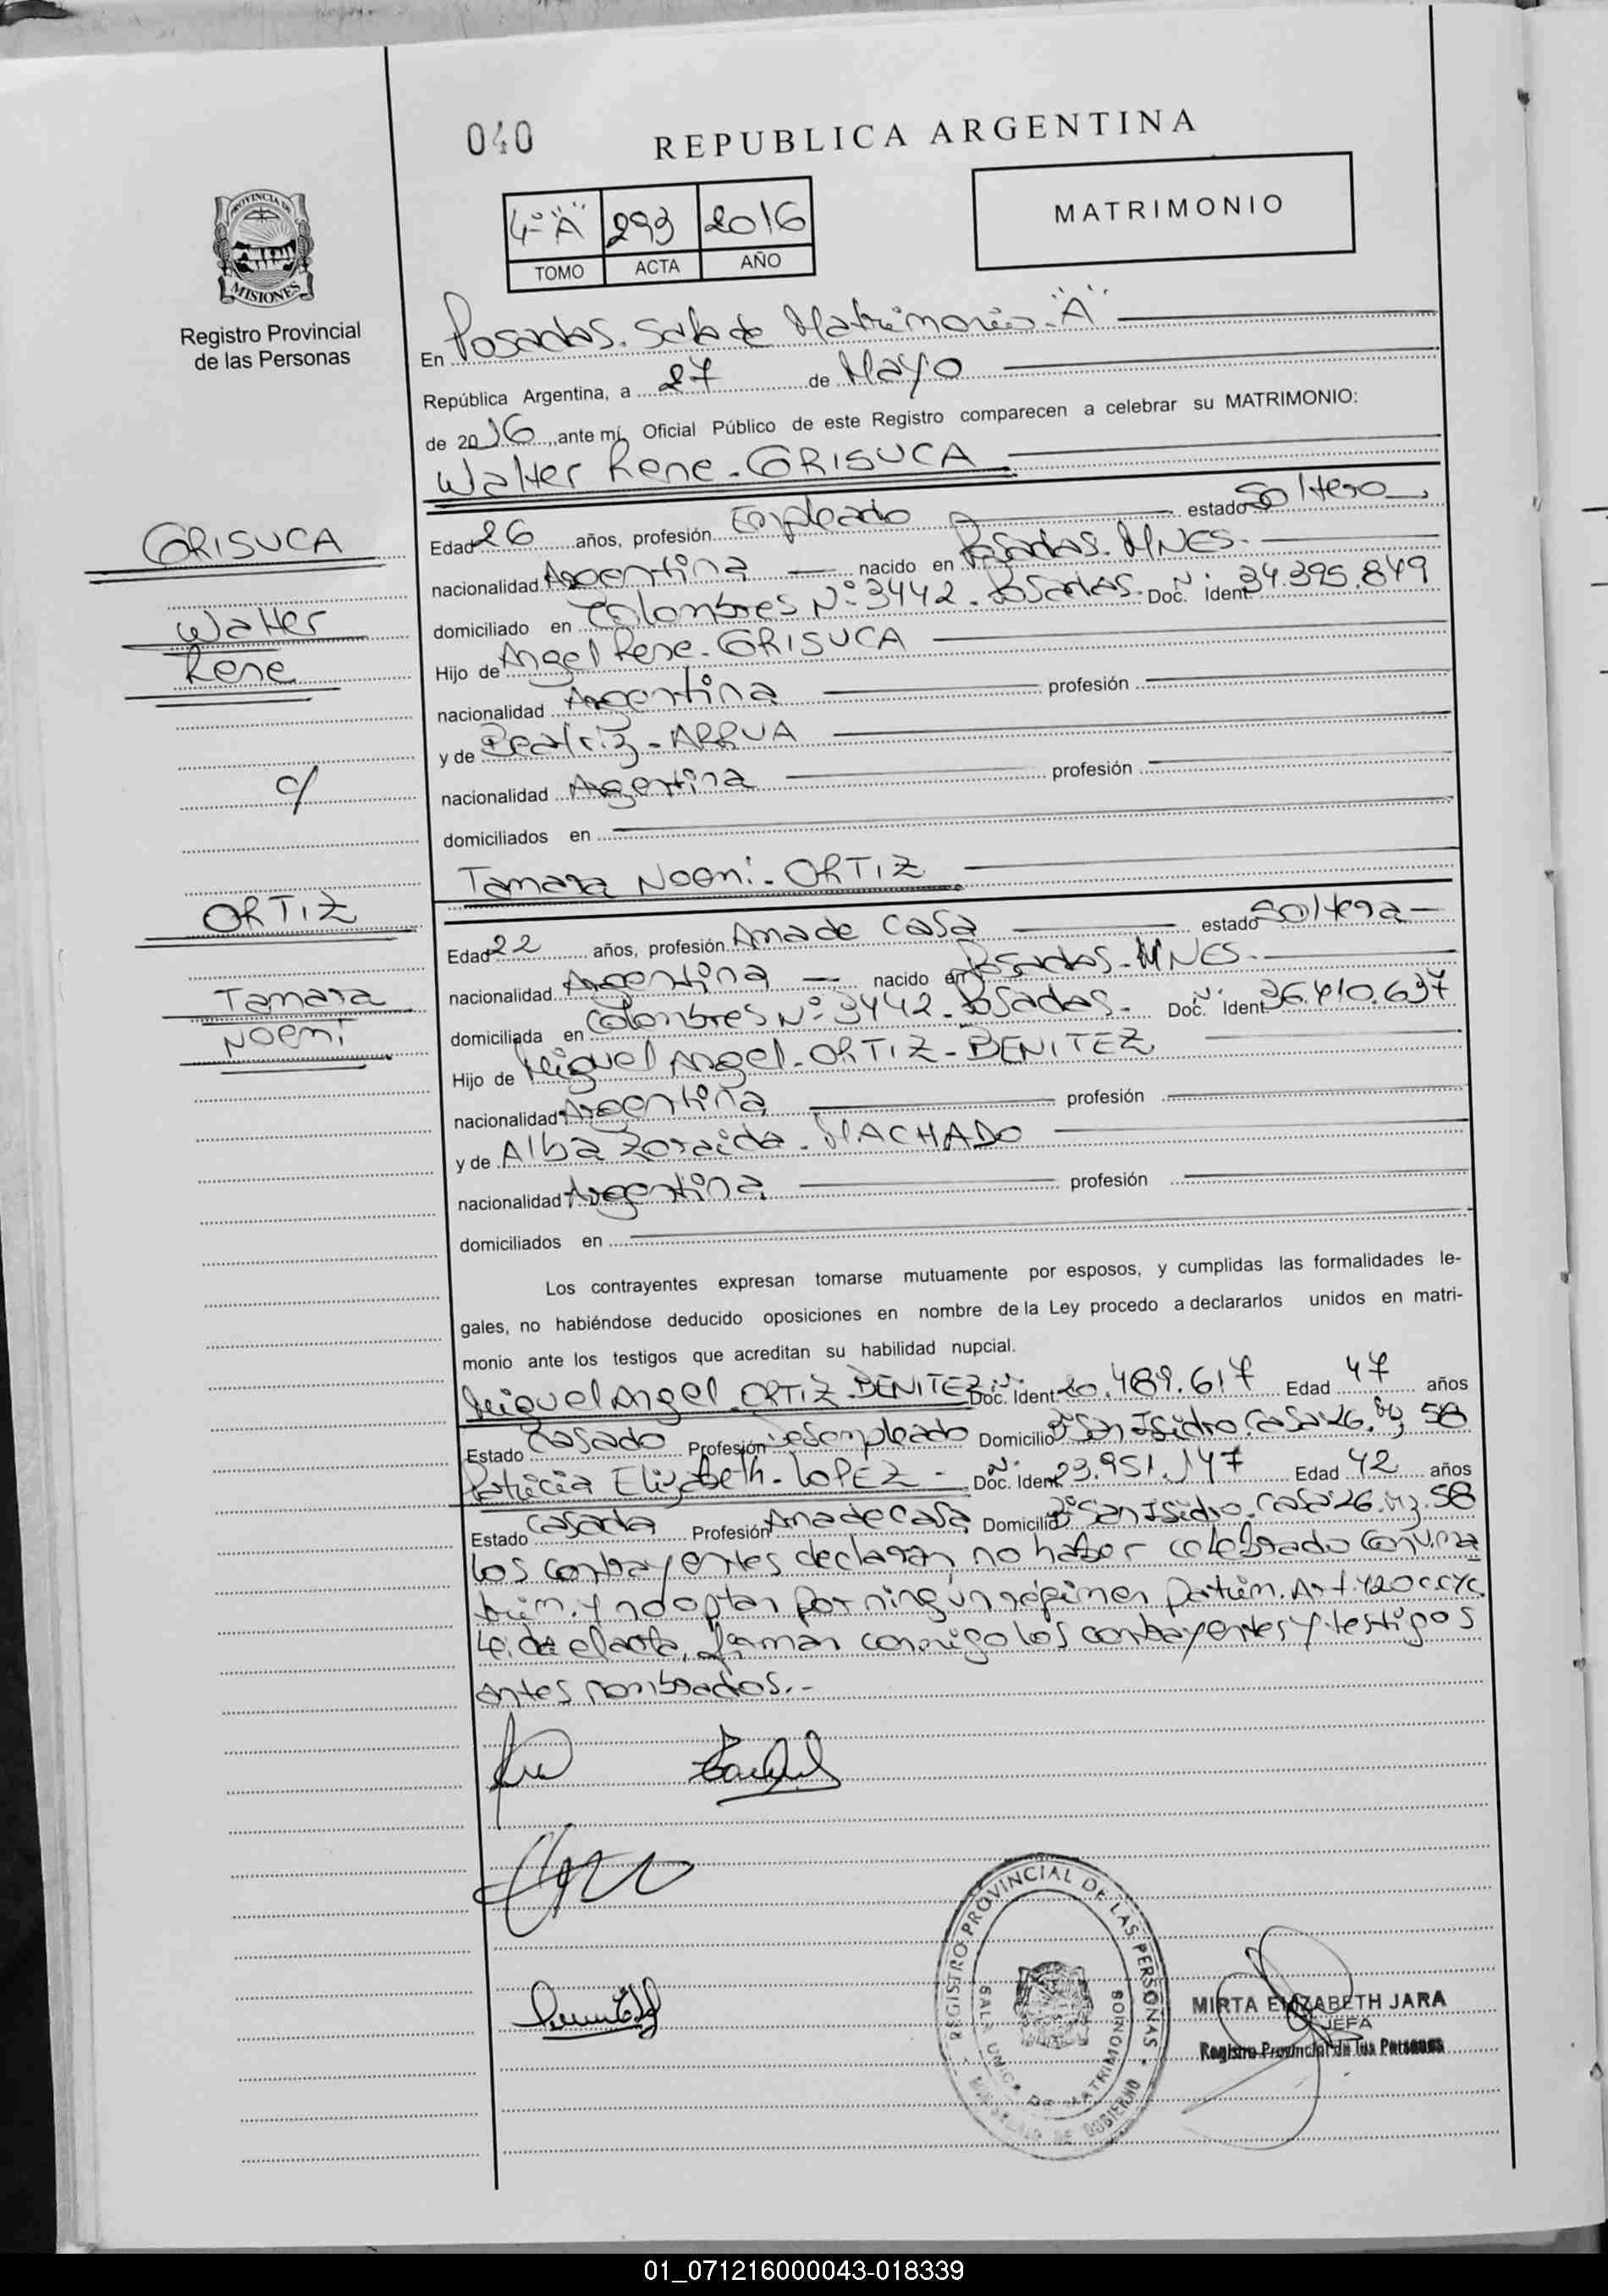 040
REPUBLICA ARGENTINA
PROVINCIA DE
MISIONES
Registro Provincial
de las Personas
4º "A" 293 2016
TOMO ACTA AÑO
MATRIMONIO
En Posadas. Sala de Matrimonio "A"
República Argentina, a 27 de Mayo
de 2016, ante mí, Oficial Público de este Registro comparecen a celebrar su MATRIMONIO:
Walter Rene - GRISUCA
GRISUCA
Walter
Rene
c/
ORTIZ
Tamara
Noemi
Edad 26 años, profesión Empleado estado Soltero
nacionalidad Argentina nacido en Posadas. MNES.
domiciliado en Colombres Nº 3442. Posadas. Doc. Nº Ident 34.395.849
Hijo de Angel Rene - GRISUCA
nacionalidad Argentina profesión
y de Beatriz - ARRUA
nacionalidad Argentina profesión
domiciliados en
Tamara Noemi - ORTIZ
Edad 22 años, profesión Ama de Casa estado Soltera
nacionalidad Argentina nacido en Posadas - MNES.
domiciliada en Colombres Nº 3442. Posadas. Doc. Nº Ident 36.410.637
Hijo de Miguel Angel - ORTIZ - BENITEZ
nacionalidad Argentina profesión
y de Alba Zoraida - MACHADO
nacionalidad Argentina profesión
domiciliados en
Los contrayentes expresan tomarse mutuamente por esposos, y cumplidas las formalidades le-
gales, no habiéndose deducido oposiciones en nombre de la Ley procedo a declararlos unidos en matri-
monio ante los testigos que acreditan su habilidad nupcial.
Miguel Angel - ORTIZ - BENITEZ Doc. Nº Ident 20.489.617 Edad 47 años
Estado Casado Profesión Desempleado Domicilio Bº San Isidro. Casa 26. Mz 58
Patricia Elizabeth - LOPEZ - Doc. Nº Ident 23.951.147 Edad 42 años
Estado Casada Profesión Ama de Casa Domicilio Bº San Isidro. Casa 26. Mz. 58
Los contrayentes declaran no haber celebrado Conv. ma
trim. y no optan por ningún régimen Patrim. Art. 420 C.C y C.
Leida el acta, firman conmigo los contrayentes y testigos
antes nombrados.-
REGISTRO PROVINCIAL DE LAS PERSONAS
SALA UNICA DE MATRIMONIOS
MINISTERIO DE GOBIERNO
MIRTA ELIZABETH JARA
JEFA
Registro Provincial de las Personas
01_071216000043-018339